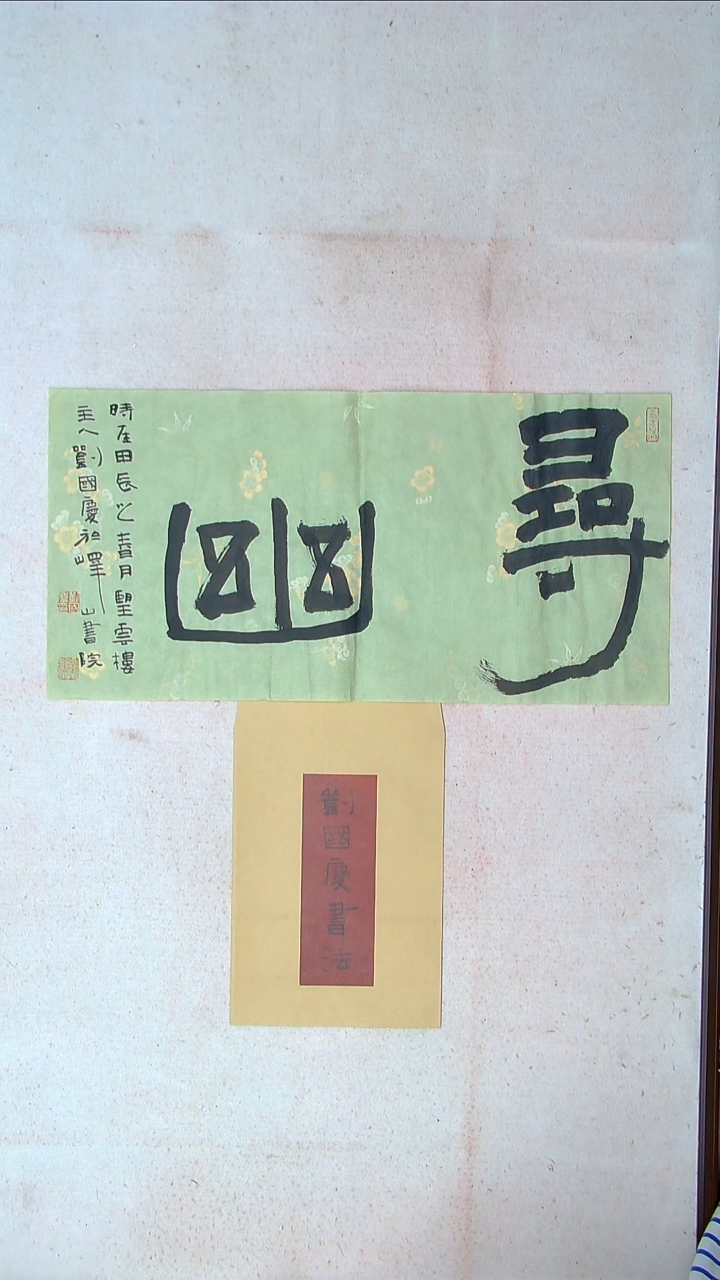 尋幽
時在甲辰之春月望雲樓
主人劉國慶於嶧山書院
劉國慶書法